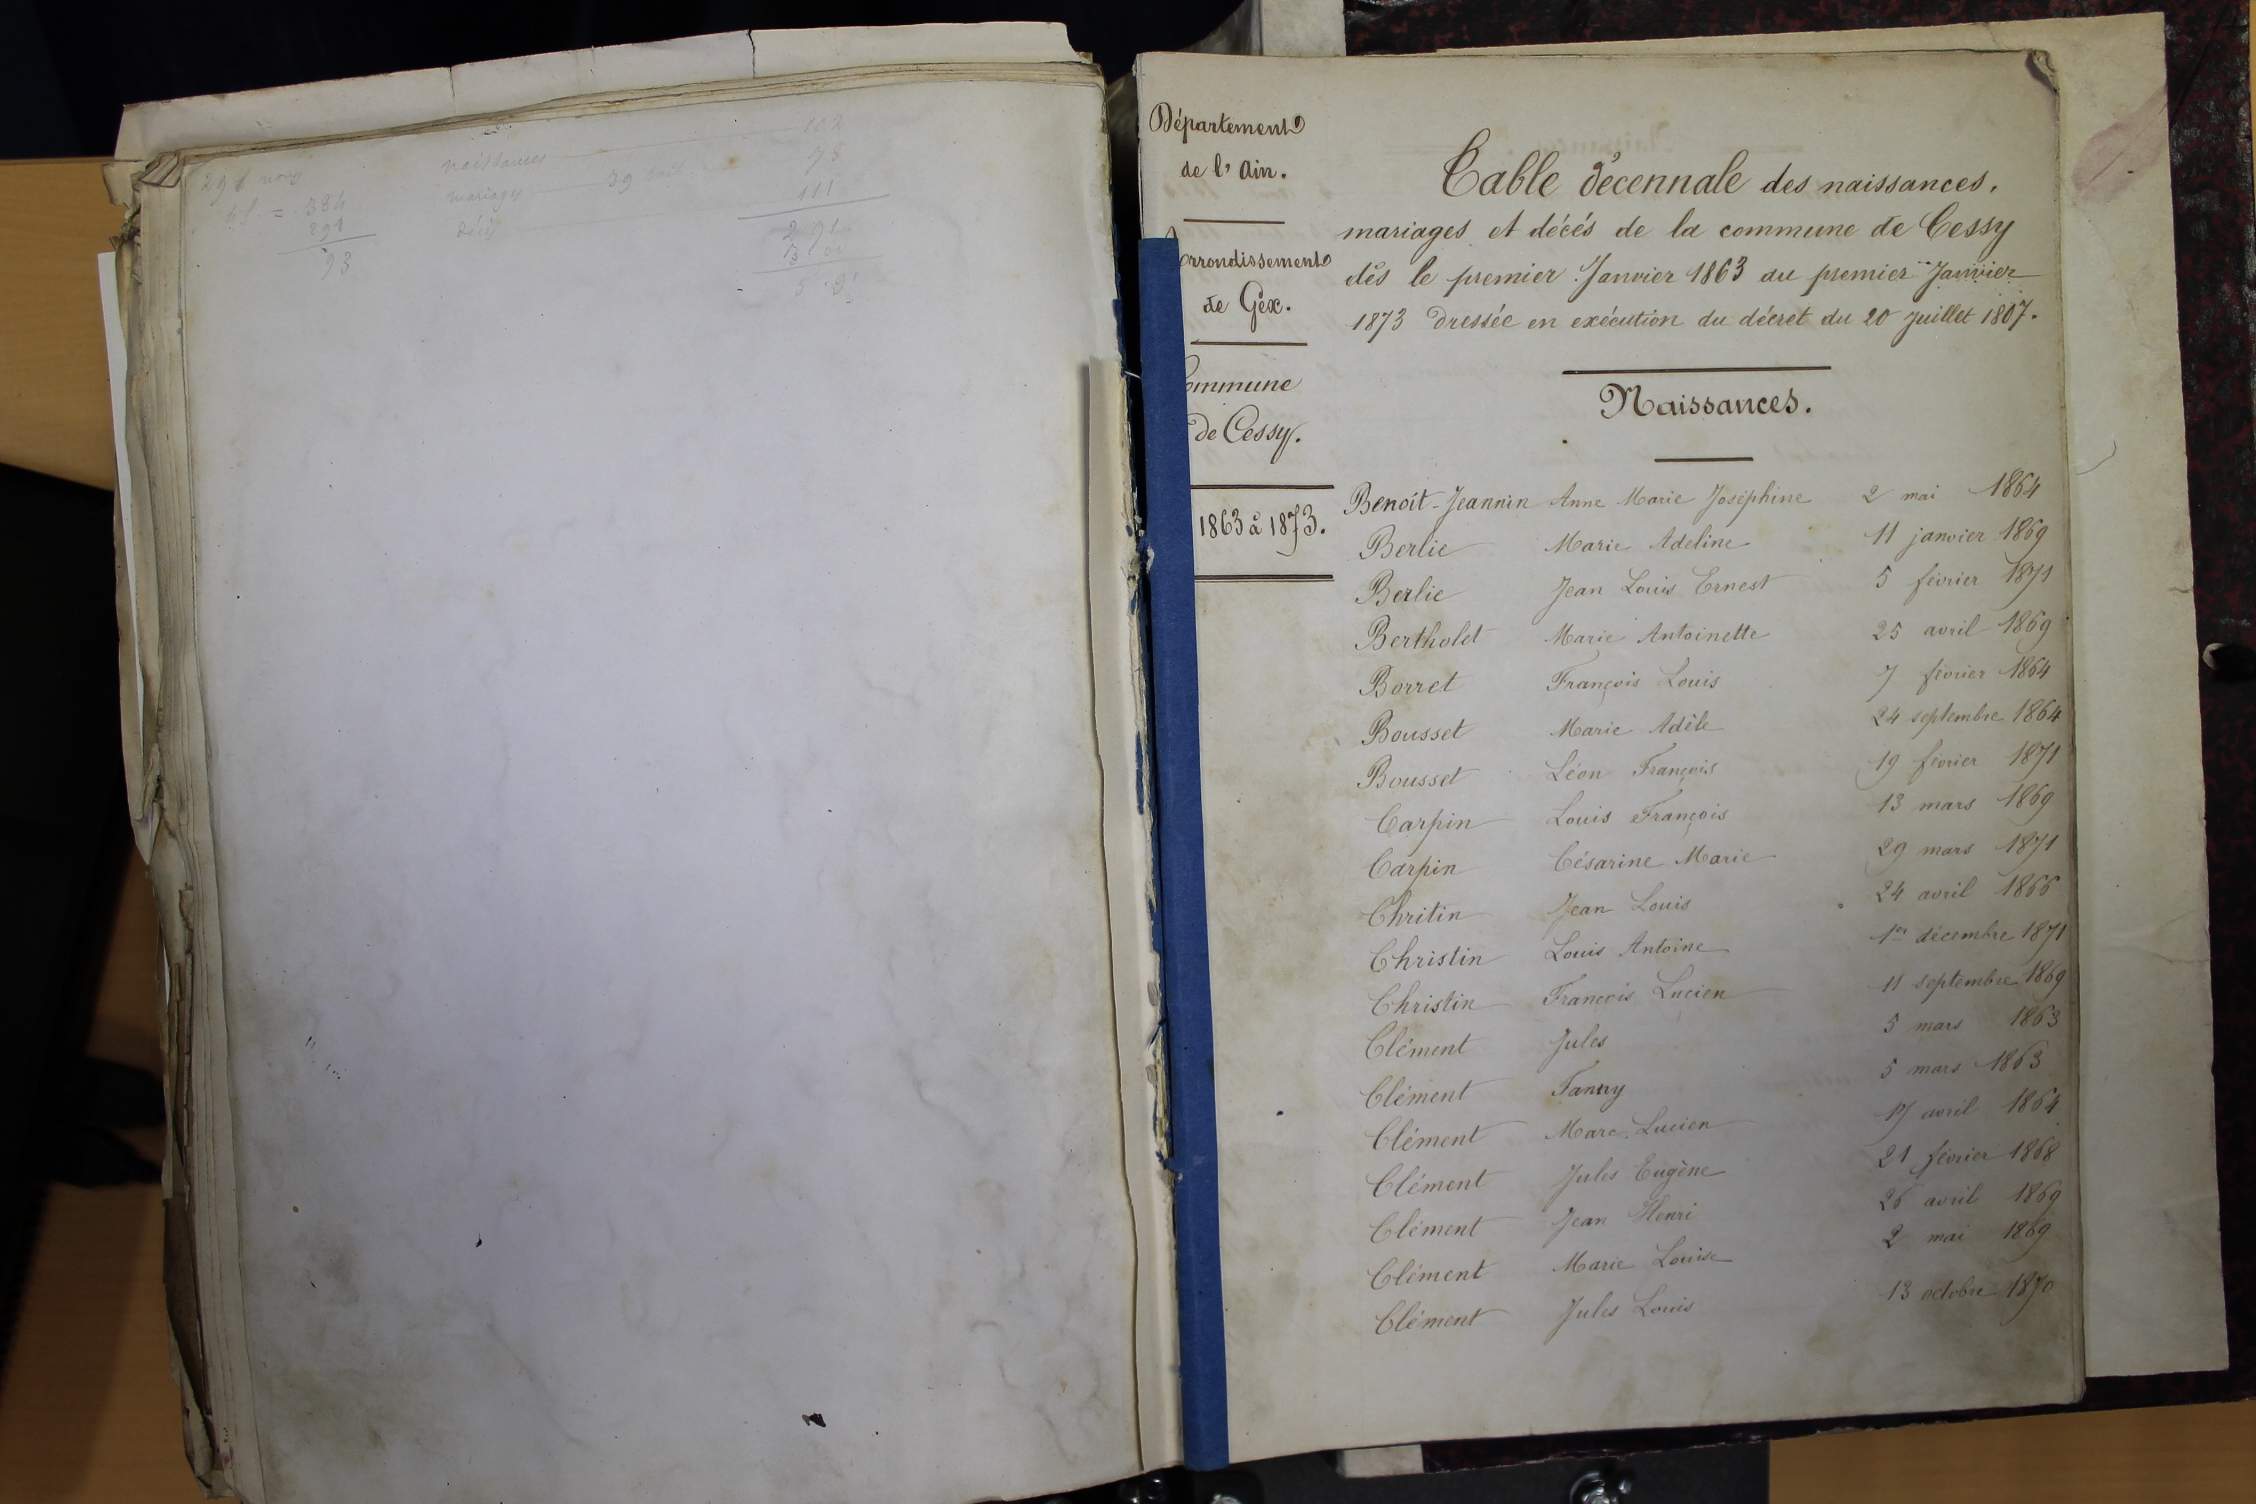 naissances 102
mariages 39 78
décès 111
291
= 384
291
93
Département
de l'Ain.
Arrondissement
de Gex.
Commune
de Cessy.
1863 à 1873.
Table décennale des naissances,
mariages et décés de la commune de Cessy
dès le premier Janvier 1863 au premier Janvier
1873 dressée en exécution du décret du 20 juillet 1807.
Naissances.
Benoit-Jeannin Anne Marie Joséphine 2 mai 1864
Berlie Marie Adeline 11 janvier 1869
Berlie Jean Louis Ernest 5 février 1871
Bertholet Marie Antoinette 25 avril 1869
Borret François Louis 7 février 1864
Bousset Marie Adèle 24 septembre 1864
Bousset Léon François 19 février 1871
Carpin Louis François 13 mars 1869
Carpin Césarine Marie 29 mars 1871
Chritin Jean Louis 24 avril 1866
Christin Louis Antoine 1er décembre 1871
Christin François Lucien 11 septembre 1869
Clément Jules 5 mars 1863
Clément Fanny 5 mars 1863
Clément Marc Lucien 17 avril 1864
Clément Jules Eugène 21 février 1868
Clément Jean Henri 26 avril 1869
Clément Marie Louise 2 mai 1869
Clément Jules Louis 13 octobre 1870